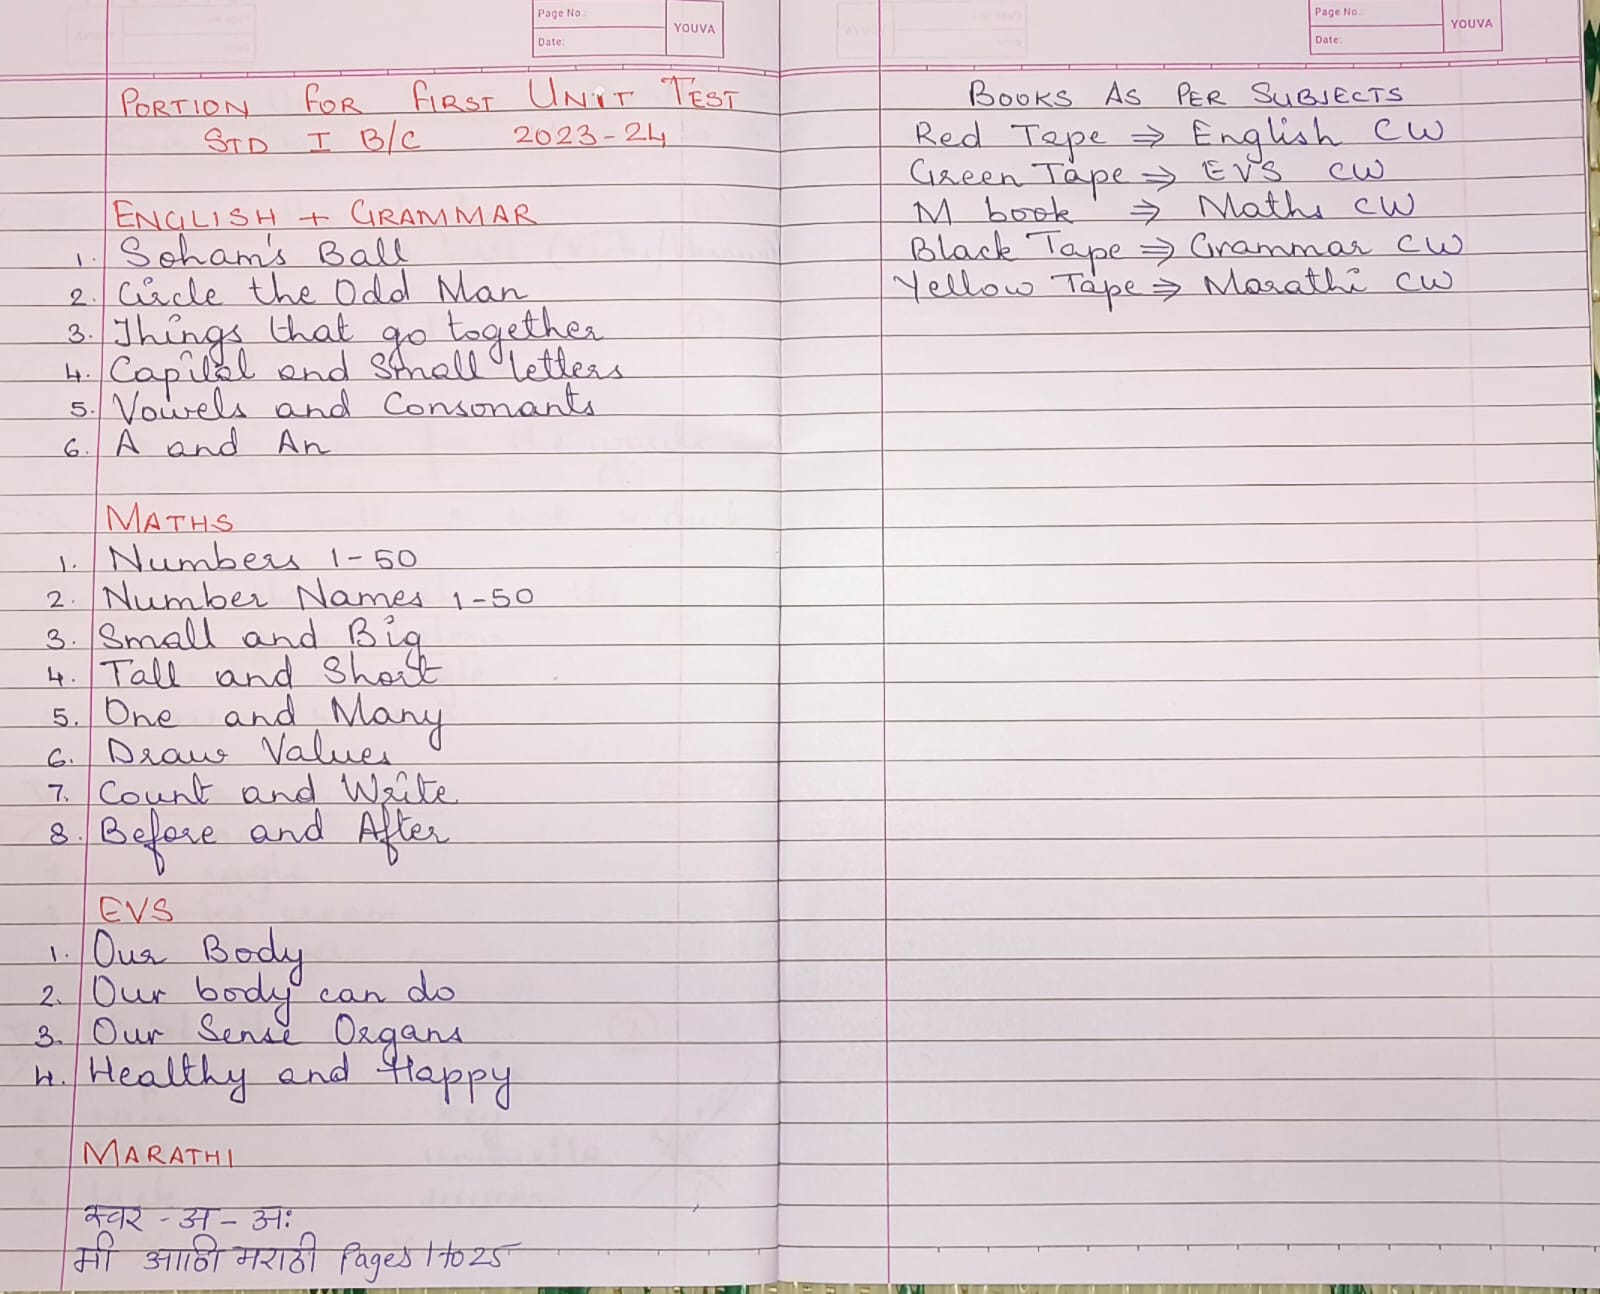 Page No.
Date:
YOUVA
PORTION FOR FIRST UNIT TEST
STD I B/C 2023-24
ENGLISH + GRAMMAR
1. Soham's Ball
2. Circle the Odd Man
3. Things that go together
4. Capital and Small letters
5. Vowels and Consonants
6. A and An
MATHS
1. Numbers 1-50
2. Number Names 1-50
3. Small and Big
4. Tall and Short
5. One and Many
6. Draw Values
7. Count and Write
8. Before and After
EVS
1. Our Body
2. Our body can do
3. Our Sense Organs
4. Healthy and Happy
MARATHI
स्वर - अ - अः
मी आणि मराठी Pages 1 to 25
Page No.
Date:
YOUVA
BOOKS AS PER SUBJECTS
Red Tape ⇒ English CW
Green Tape ⇒ EVS CW
M book ⇒ Maths CW
Black Tape ⇒ Grammar CW
Yellow Tape ⇒ Marathi CW